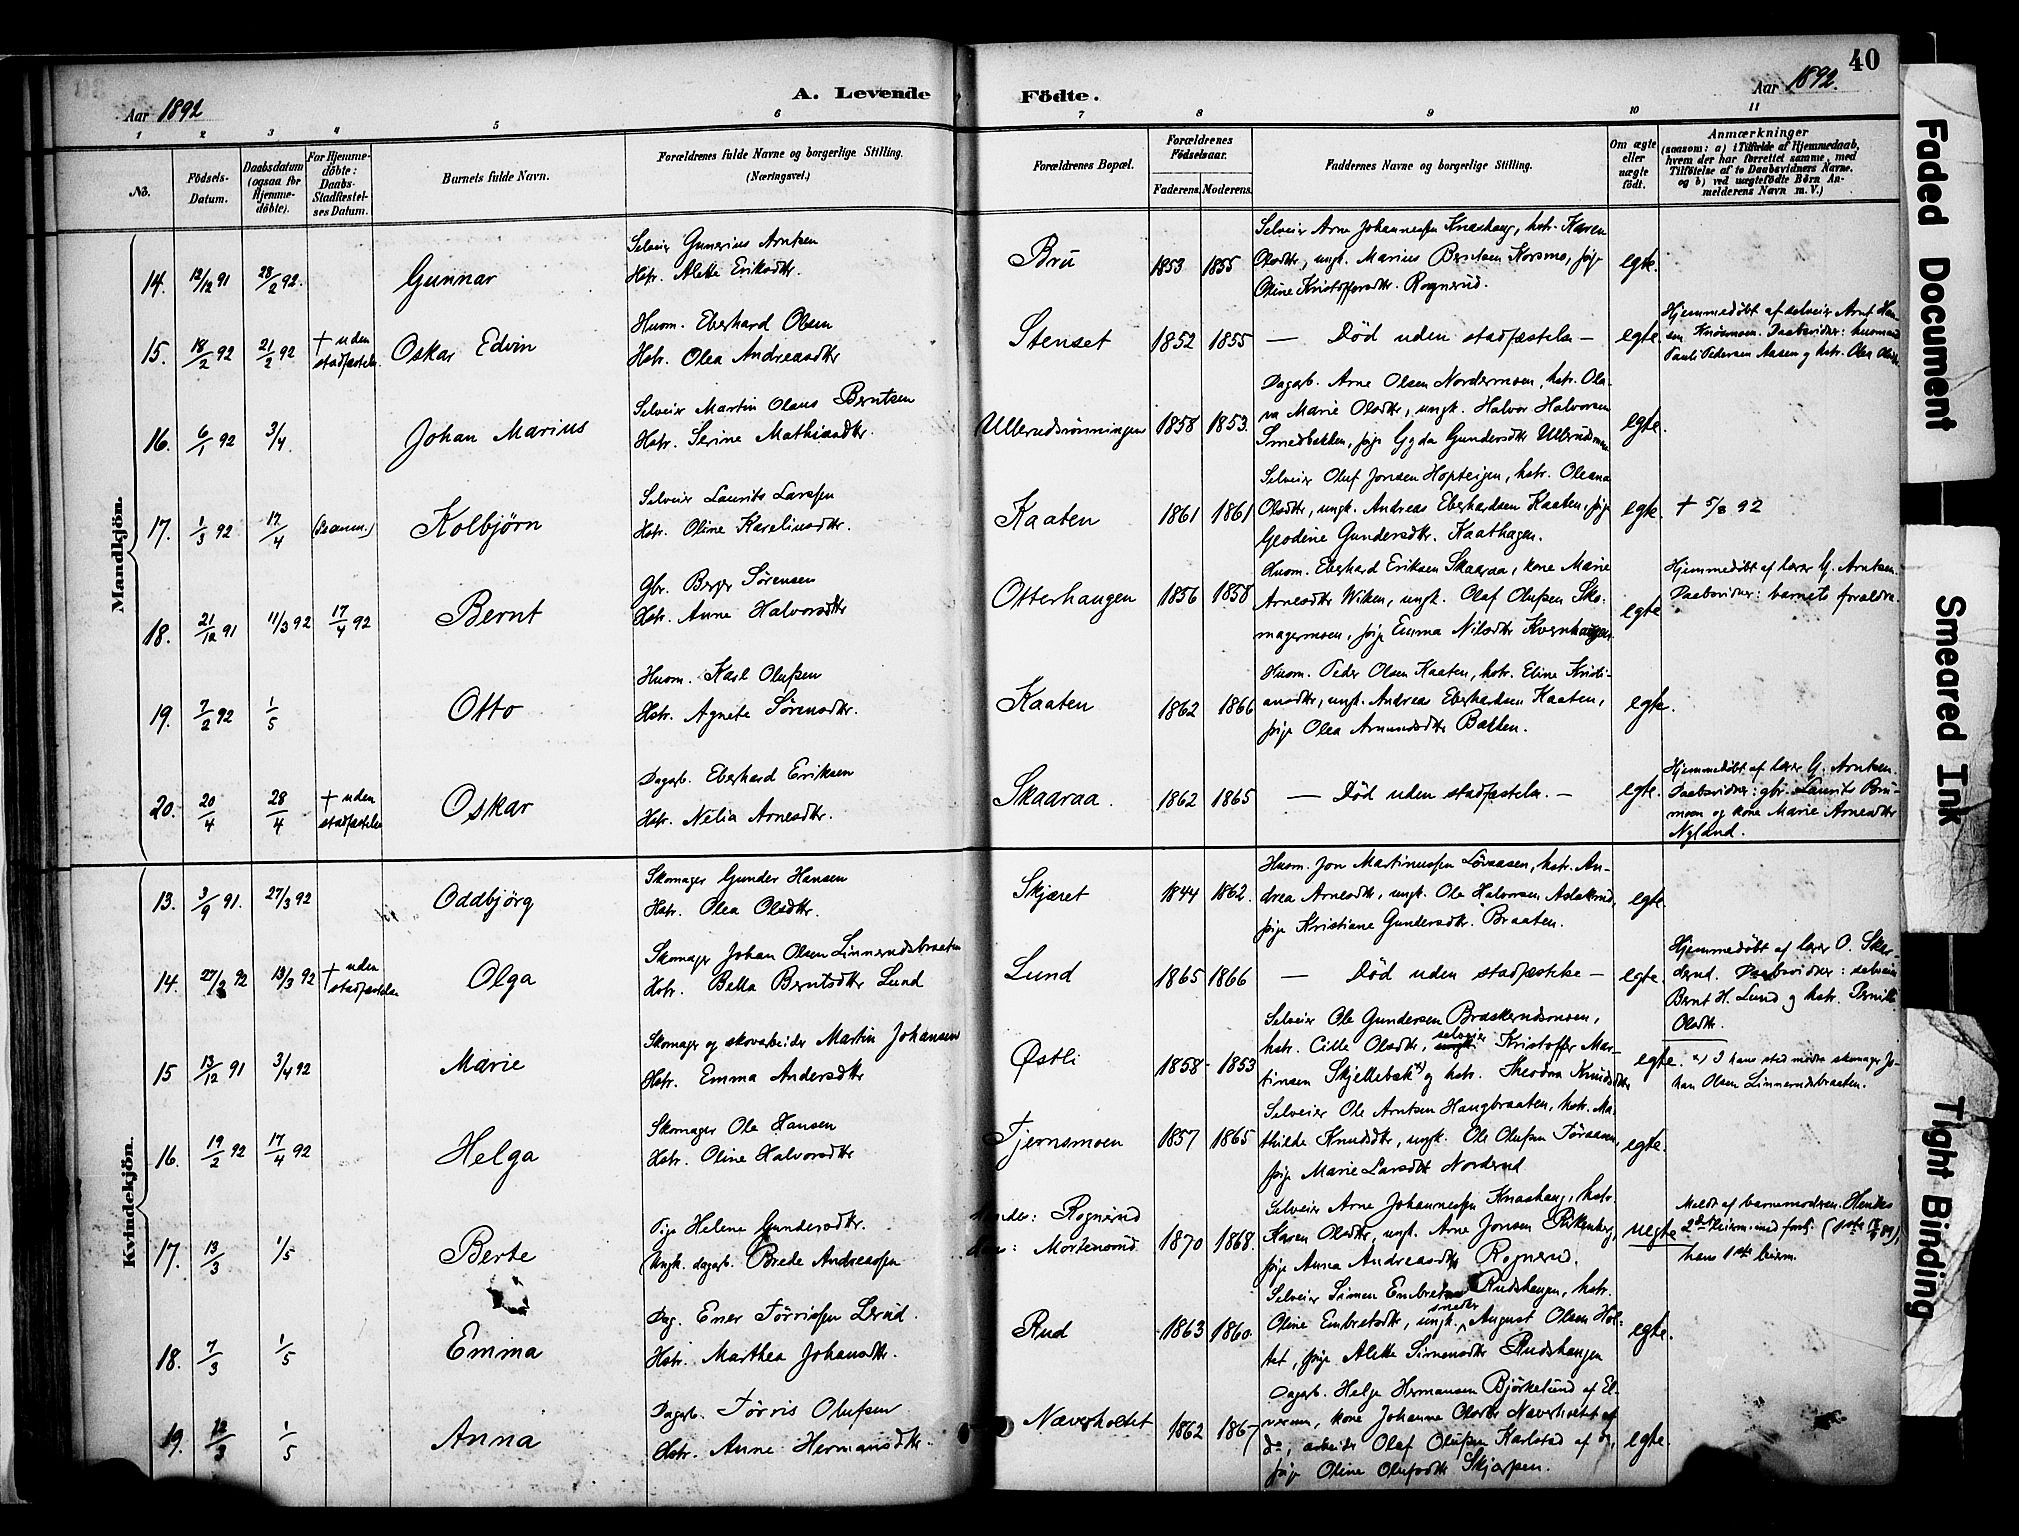 40
Aar 1892
A. Levende Födte.
Aar 1892.
1 2 3 4 5 6 7 8 9 10 11
No.
Födsels-
Datum.
Daabsdatum
(ogsaa for
Hjemme-
döbte).
For Hjemme-
döbte:
Daabs-
Stadfæstel-
ses Datum.
Barnets fulde Navn.
Forældrenes fulde Navne og borgerlige Stilling.
(Næringsvei.)
Forældrenes Bopæl.
Forældrenes
Födselsaar.
Faderens. Moderens.
Faddernes Navne og borgerlige Stilling.
Om ægte
eller
uægte
födt.
Anmærkninger
(saasom: a) i Tilfælde af Hjemmedaab,
hvem der har forrettet samme, med
Tilföielse af to Daabsvidners Navne,
og b) ved uægtefödte Börn An-
melderens Navn m. V.)
Mandkjön.
14. 12/12 91 28/2 92. Gunnar
Selveier Gunerius Arntsen
Hstr. Alette Eriksdtr.
Bru 1853 1855
Selveier Arne Johannessen Knashaug, hstr. Karen
Olsdtr, ungk. Marius Berntsen Korsmo, pige
Oline Kristoffersdtr. Rognerud.
egte.
15. 18/2 92 21/2 92 † uden
stadfæstelse
Oskar Edvin
Husm. Eberhard Olsen
Hstr. Olea Andreasdtr
Stenset 1852 1855 — Död uden stadfæstelse — egte.
Hjemmedöbt af selveier Arnt Han-
sen Knösmoen. Daabsvidner: husmand
Pauli Pedersen Aasen og hstr. Olea
16. 6/1 92 3/4. Johan Marius
Selveier Martin Olaus Berntsen
Hstr. Serine Mathisdtr.
Ullerudsrönningen 1858 1853.
Dagarb. Arne Olsen Nordermoen, hstr. Ola-
va Marie Olsdtr, ungk. Halvor Halvorsen
Smedbakken, pige Gyda Gundersdtr
egte.
17. 1/3 92 17/4 Kolbjörn
Selveier Laurits Larssen
Hstr. Oline Karelinsdtr.
Kaaten 1861 1861
Selveier Oluf Jonsen Hopteigen, hstr. Oleana
Olsdtr, ungk. Andreas Eberhardsen Kaaten, pige
Geodine Gundersdtr. Kaathagen.
egte. † 5/8 92
18. 21/12 91 11/3 92 17/4 92 Bernt
Gbr. Berger Sörensen
Hstr. Anne Halvorsdtr
Otterhaugen 1856 1858
Husm. Eberhard Eriksen Skaaraa, kone Marie
Arnesdtr Wiken, ungk. Olaf Olufsen Sko-
magermoen, pige Emma Nilsdtr Kvernhaugen.
egte
Hjemmedöbt af lærer G. Arntsen.
Daabsvidner: barnets forældre.
19. 7/2 92 1/5 Otto
Husm. Karl Olufsen
Hstr. Agnete Sörensdtr.
Kaaten 1862 1866
Husm. Peder Olsen Kaaten, hstr. Eline Kristi-
ansdtr, ungk. Andreas Eberhardsen Kaaten,
pige Olea Amundsdtr Bakken.
egte.
20. 20/4 28/4 † uden
stadfæstelse
Oskar
Dagarb. Eberhard Eriksen
Hstr. Nelia Arnesdtr.
Skaaraa. 1862 1865 — Död uden stadfæstelse. — egte.
Hjemmedöbt af lærer G. Arntsen.
Daabsvidner: gbr. Laurits Bru-
moen og kone Marie Arnesdtr
Nyland.
Kvindekjön.
13. 3/9 91. 27/3 92 Oddbjörg
Skomager Gunder Hansen
Hstr. Olea Olsdtr.
Skjæret 1844 1862.
Husm. Jon Martinussen Lövaasen, hstr. An-
drea Arnesdtr, ungk. Ole Halvorsen Aslakrud,
pige Kristiane Gundersdtr. Braaten.
egte.
14. 27/2 92 13/3 92 † uden
stadfæstelse
Olga
Skomager Johan Olsen Linnerudsbraaten
Hstr. Betta Berntsdtr Lund
Lund 1865 1866 — Död uden stadfæstelse — egte.
Hjemmedöbt af lærer O. Ske-
derud. Daabsvidner: selveier
Bernt H. Lund og hstr. Pernille
Olsdtr.
15 13/12 91 3/4 92 Marie
Skomager og skovarbeider Martin Johansen
Hstr. Emma Andersdtr
Østli 1858 1853
Selveier Ole Gundersen Braskerudsmoen,
hstr. Cille Olsdtr, selveier Kristoffer Mar-
tinsen Skjellebæk x) og hstr. Theodora Knudsdtr
egte.
x) I hans sted mödte skomager Jo-
han Olsen Linnerudsbraaten.
16. 19/2 92 17/4 92 Helga
Skomager Ole Hansen
Hstr. Oline Halvorsdtr
Tjernsmoen 1857 1865
Selveier Ole Arntsen Haugbraaten, hstr. Ma-
thilde Knudsdtr, ungk. Ole Olufsen Töraasen,
pige Marie Larsdtr Norderud
egte.
17. 13/3 1/5 Berte
Pige Helene Gundersdtr.
Ungk. dagarb. Brede Andreassen
Hendes: Rognerud
Hans: Mortensrud
1870 1868.
Selveier Arne Johannessen Knashaug, hstr.
Karen Olsdtr, ungk. Arne Jonsen Birkenberg,
pige Anna Andreasdtr Rognerud.
uegte
Meldt af barnemoderen. Hendes
2det leierm. med forh.
hans 1ste leierm.
18. 7/3 1/5 Emma
Dag. Ener Törrissen Lerud.
Hstr. Marthea Johansdtr.
Rud 1863 1860.
Selveier Simen Embretsen Rudshaugen, hstr.
Oline Embretsdtr, ungk. smedler August Olsen Hol-
tet, pige Alette Simensdtr Rudshaugen
egte.
19. 12/3 1/5 Anna
Dagarb. Törris Olufsen
Hstr. Anne Hermansdtr.
Næverholtet 1862 1867
Dagarb. Helge Hermansen Björkelund af El-
verum, kone Johanne Olsdtr Næverholtet af
do, arbeider Olaf Olufsen Karlstad af do,
pige Oline Olufsdtr Skjærpen.
egte.
Faded Document
Smeared Ink
Tight Binding